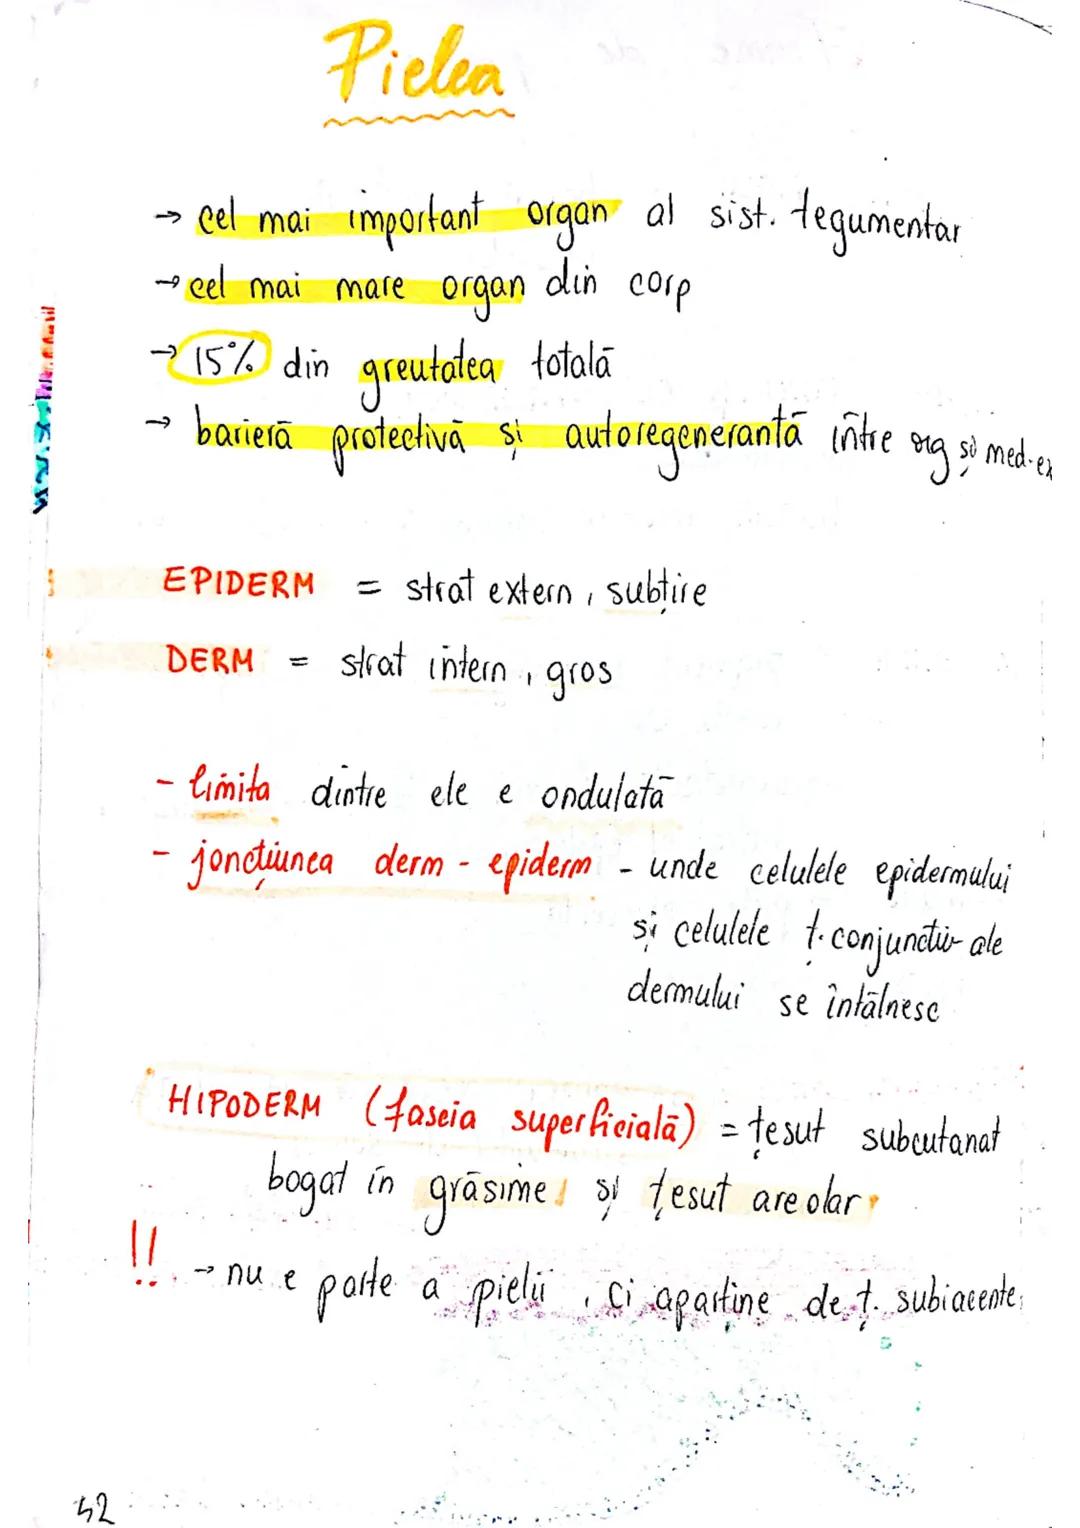 Pielea
→ cel mai important organ al sist. tegumentar
→ cel mai mare organ din corp
→ 15% din greutatea totală
→ barieră protectivă și autoregenerantă între org și med. ex
EPIDERM = strat extern, subțire
DERM = strat intern, gros
- limita dintre ele e ondulată
- joncțiunea derm - epiderm - unde celulele epidermului
și celulele ț. conjunctiv ale
dermului se întâlnesc
HIPODERM (fascia superficială) = țesut subcutanat
bogat în grăsime și țesut areolar
!! → nu e parte a pielii, ci aparține de ț. subiacente
42